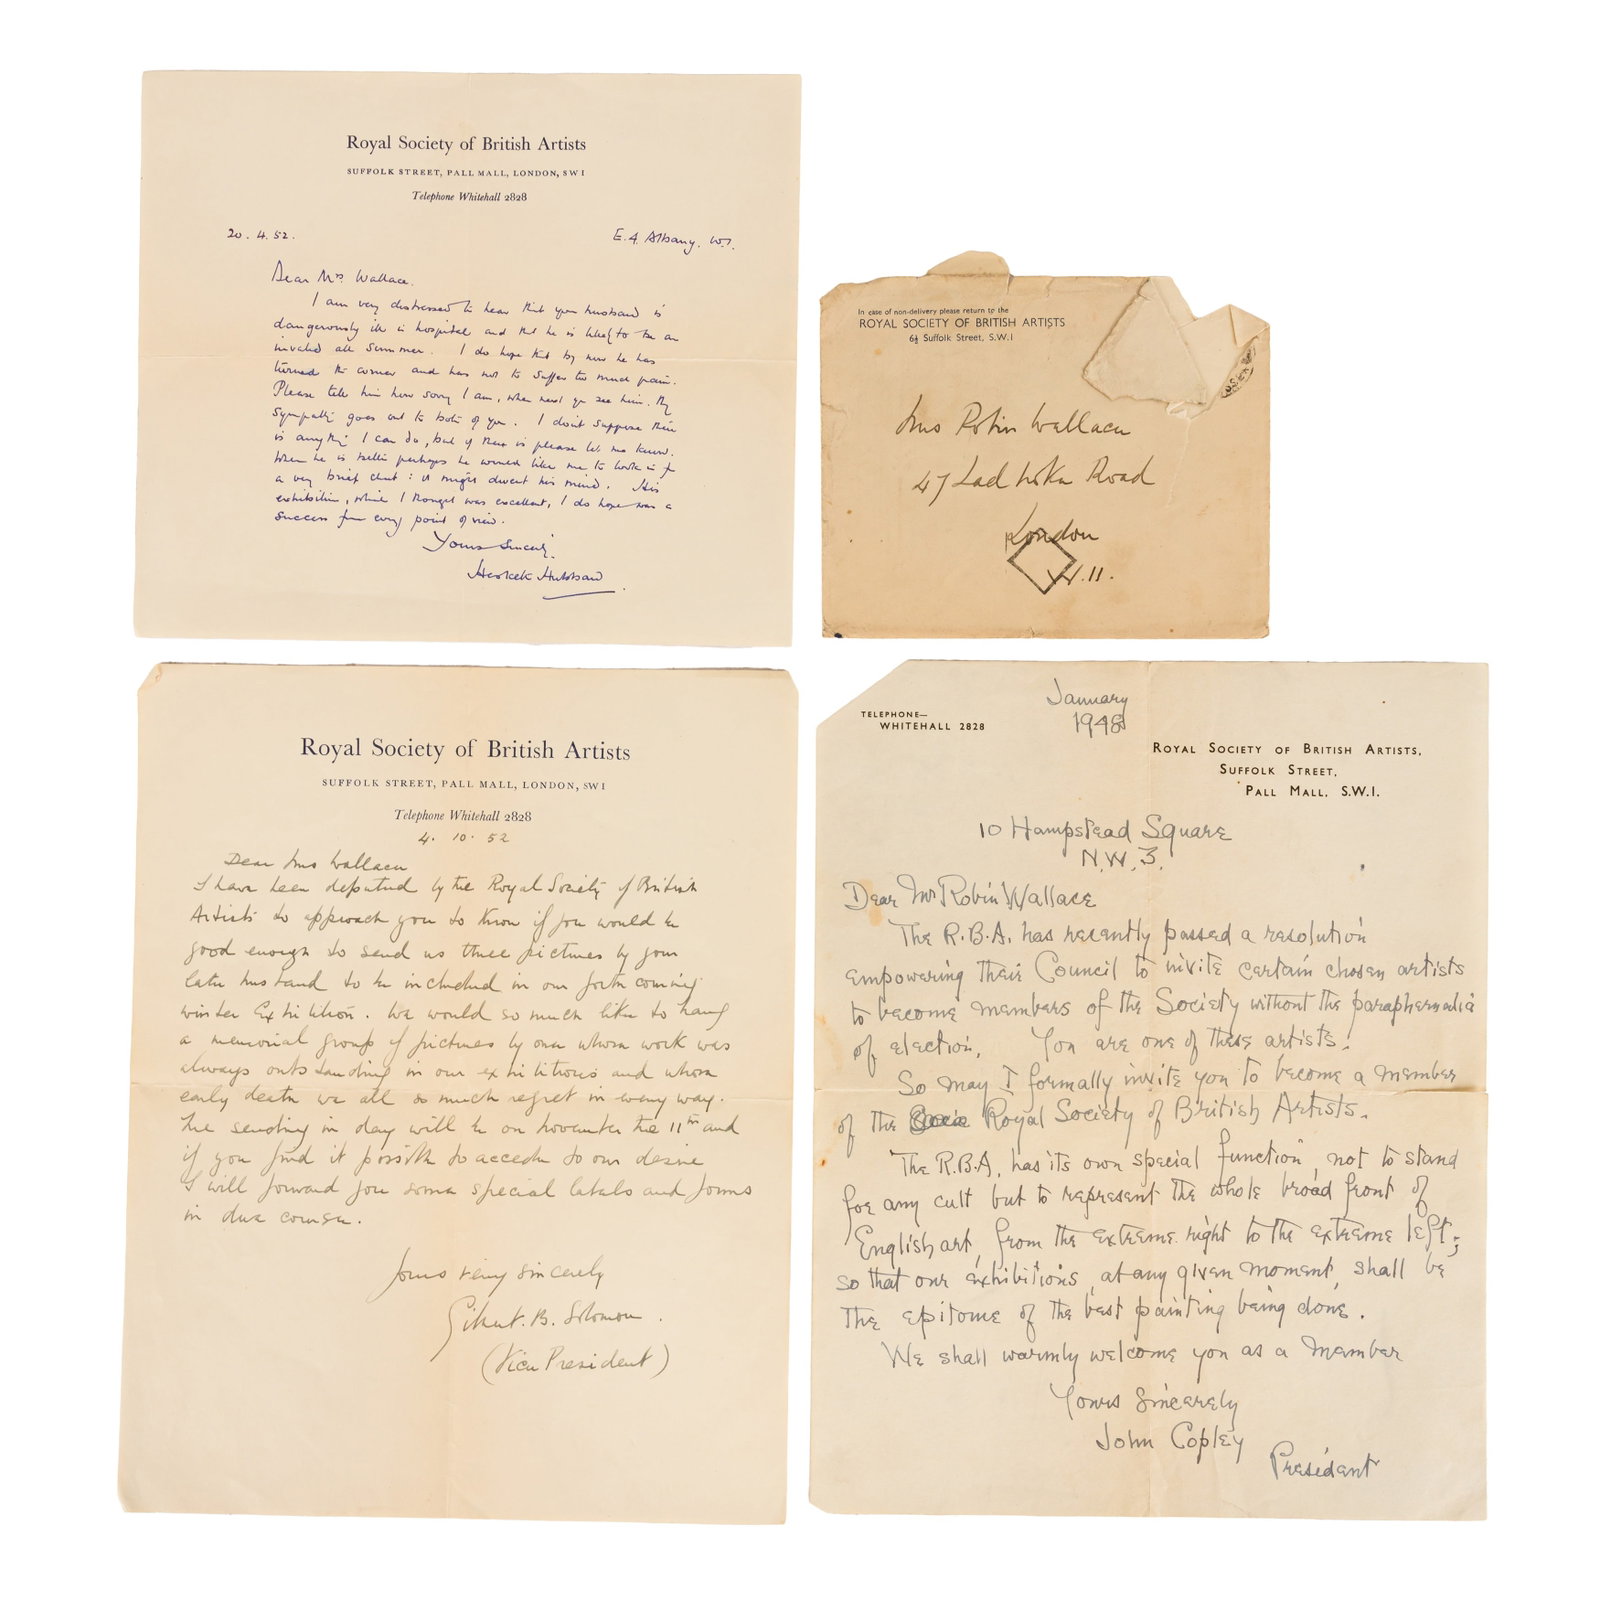 Royal Society of British Artists
SUFFOLK STREET, PALL MALL, LONDON, SW1
Telephone Whitehall 2828
20.4.52. E.4 Albany. W1.
Dear Mrs Wallace.
I am very distressed to hear that your husband is
dangerously ill in hospital and that he is likely to be an
invalid all summer. I do hope that by now he has
turned the corner and has not to suffer too much pain.
Please tell him how sorry I am, when next you see him. My
sympathy goes out to both of you. I don't suppose there
is anything I can do, but if there is please let me know.
When he is better perhaps he would like me to look in for
a very brief chat: it might divert his mind. His
exhibition, which I thought was excellent, I do hope was a
success from every point of view.
Yours Sincerely.
Hesketh Hubbard
In case of non-delivery please return to the
ROYAL SOCIETY OF BRITISH ARTISTS
6½ Suffolk Street, S.W.1
Mrs Robin Wallace
47 Ladbroke Road
London
W.11.
Royal Society of British Artists
SUFFOLK STREET, PALL MALL, LONDON, SW1
Telephone Whitehall 2828
4. 10. 52
Dear Mrs Wallace
I have been deputed by the Royal Society of British
Artists to approach you to know if you would be
good enough to send us three pictures by your
late husband to be included in our forth coming
winter Exhibition. We would so much like to hang
a memorial group of pictures by one whose work was
always outstanding in our exhibitions and whose
early death we all so much regret in every way.
The sending in day will be on November the 11th and
if you find it possible to accede to our desire
I will forward you some special labels and forms
in due course.
Yours very sincerely
Gilbert. B. Solomon.
(Vice President)
TELEPHONE—
WHITEHALL 2828
January
1948
ROYAL SOCIETY OF BRITISH ARTISTS,
SUFFOLK STREET,
PALL MALL, S.W.1.
10 Hampstead Square
N.W.3.
Dear Mr Robin Wallace
The R.B.A. has recently passed a resolution
empowering their Council to invite certain chosen artists
to become members of the Society without the paraphernalia
of election. You are one of these artists.
So may I formally invite you to become a member
of the Royal Society of British Artists.
The R.B.A. has its own special function, not to stand
for any cult but to represent the whole broad front of
English art, from the extreme right to the extreme left;
so that our exhibitions, at any given moment, shall be
the epitome of the best painting being done.
We shall warmly welcome you as a member
Yours sincerely
John Copley
President